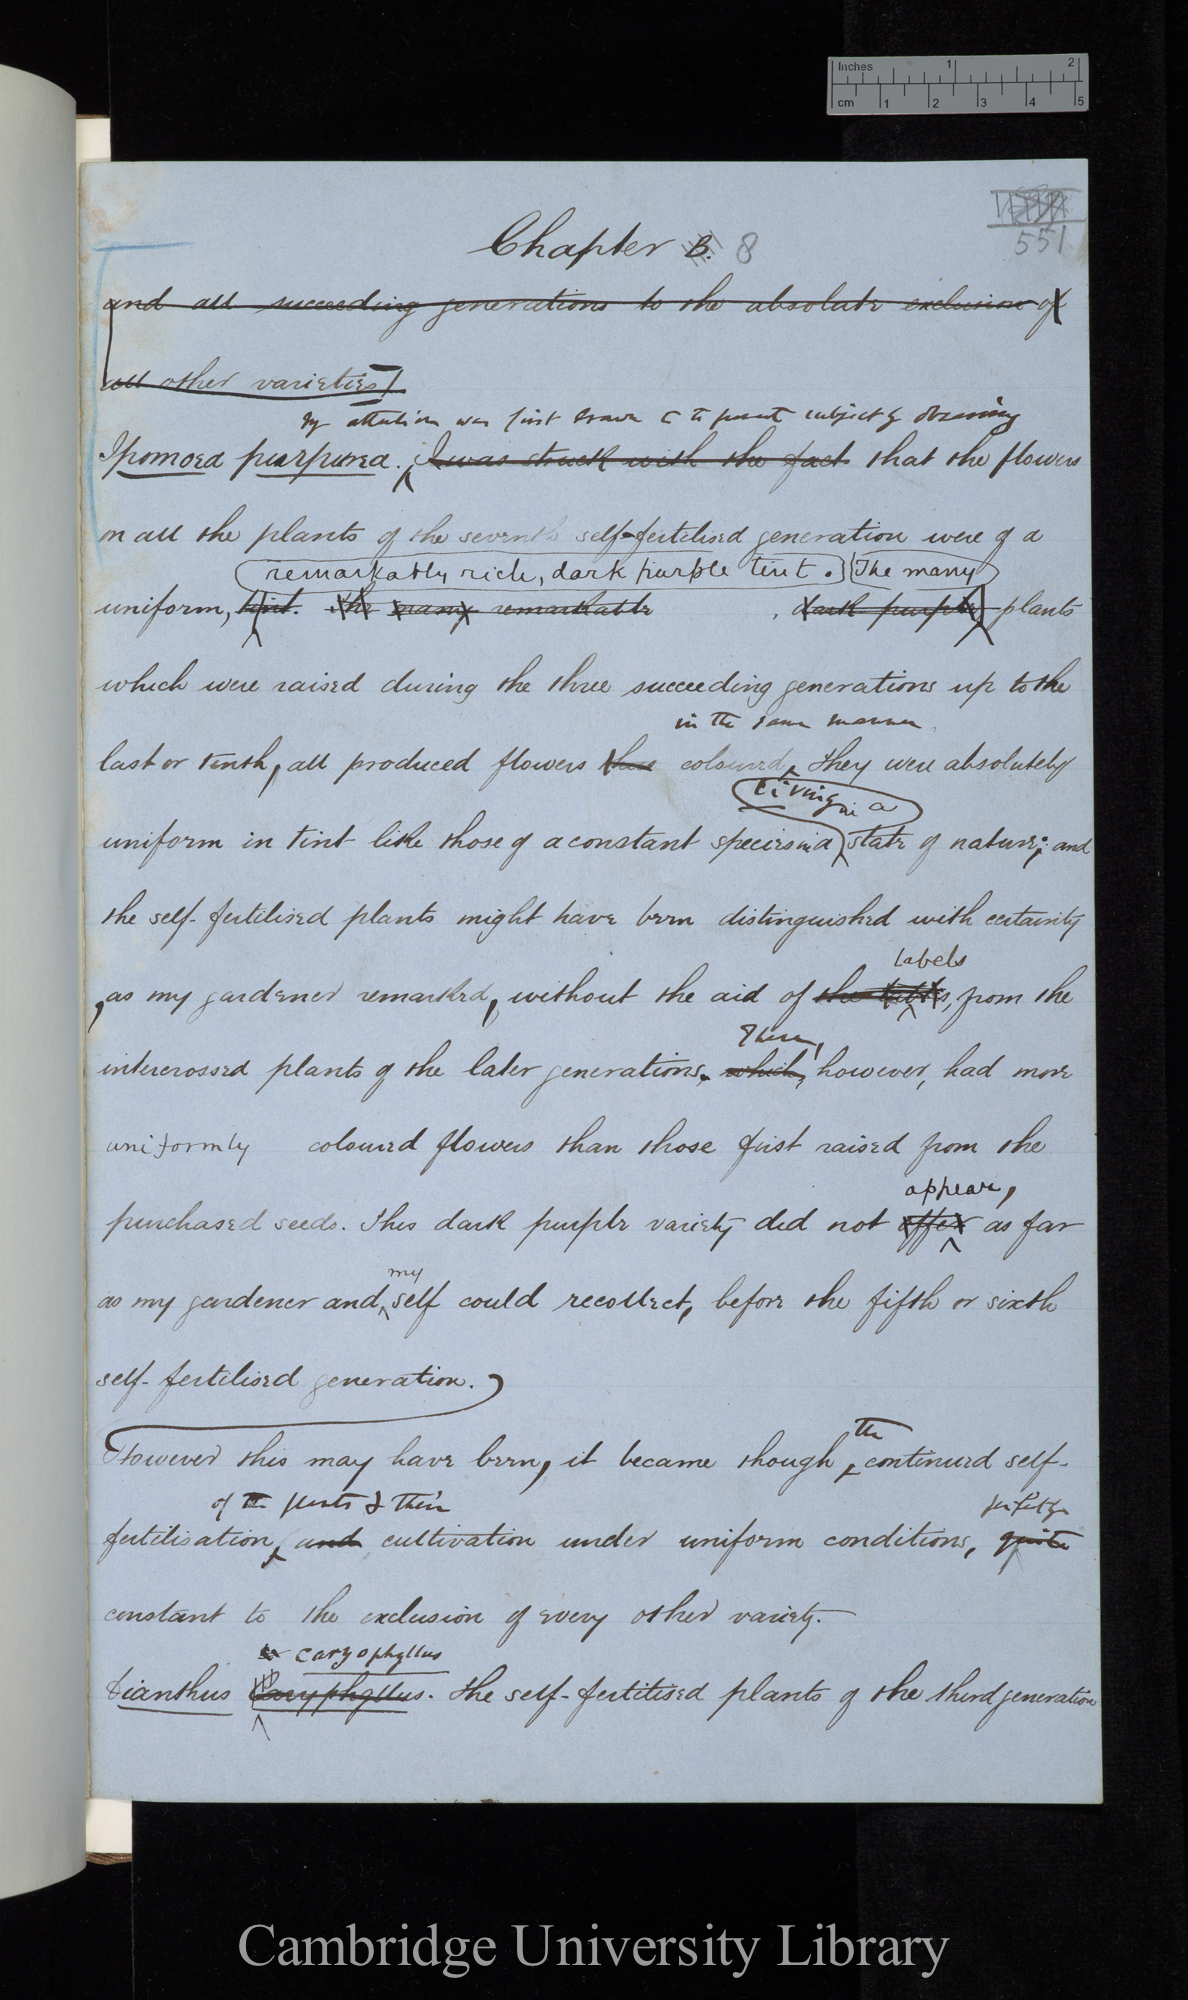 Inches 1 2
cm 1 2 3 4 5
551
Chapter B. 8
and all succeeding generations to the absolute exclusion of
all other varieties]
My attention was first drawn to present subject by observing
Ipomoea purpurea. I was struck with the fact that the flowers
on all the plants of the seventh self-fertilised generation were of a
remarkably rich, dark purple tint. The many
uniform, tint. The many remarkable , dark purple plants
which were raised during the three succeeding generations up to the
in the same manner.
last or tenth, all produced flowers thus coloured. They were absolutely
living in a
uniform in tint like those of a constant species in a state of nature; and
the self-fertilised plants might have been distinguished with certainty
labels
, as my gardener remarked, without the aid of the labels, from the
These,
intercrossed plants of the later generations. which, however, had more
uniformly coloured flowers than those first raised from the
appear,
purchased seeds. This dark purple variety did not offer as far
my
as my gardener and self could recollect, before the fifth or sixth
self-fertilised generation.
the
However this may have been, it became though continued self-
of the plants & their perfectly
fertilisation, and cultivation under uniform conditions, quite
constant to the exclusion of every other variety.—
caryophyllus
Dianthus Caryphyllus. The self-fertilised plants of the third generation
Cambridge University Library